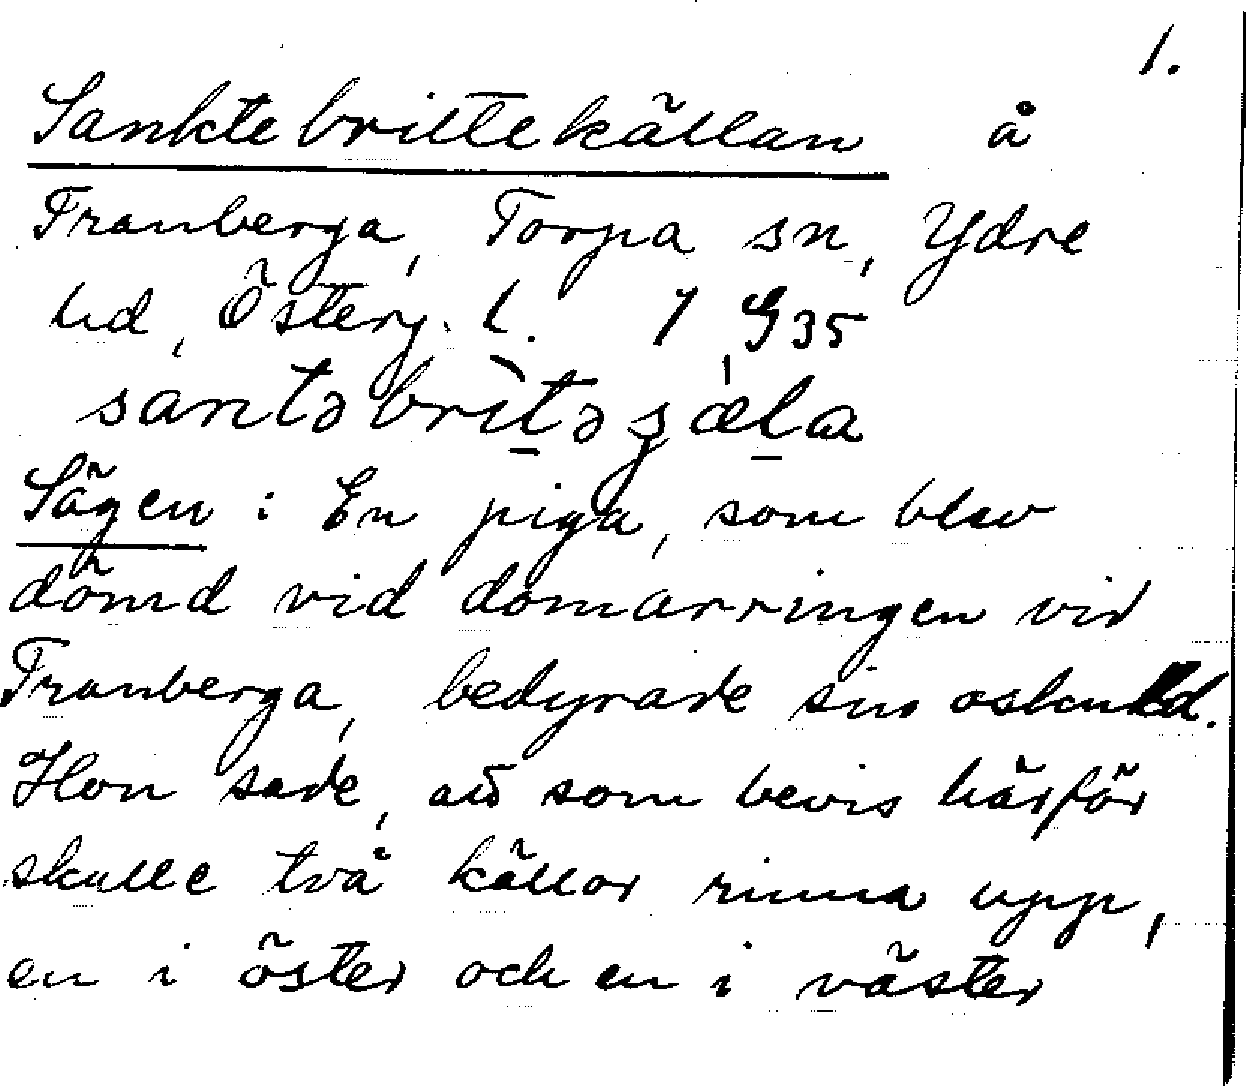 1.
Sanktebrittekällan å
Franberga, Torpa sn, Ydre
hd, Österg. l. 7 G 35
santəbrìtəgæla
Sägen: En piga, som blev
dömd vid domarringen vid
Franberga, bedyrade sin oskuld.
Hon sade, att som bevis härför
skulle två källor rinna upp,
en i öster och en i väster